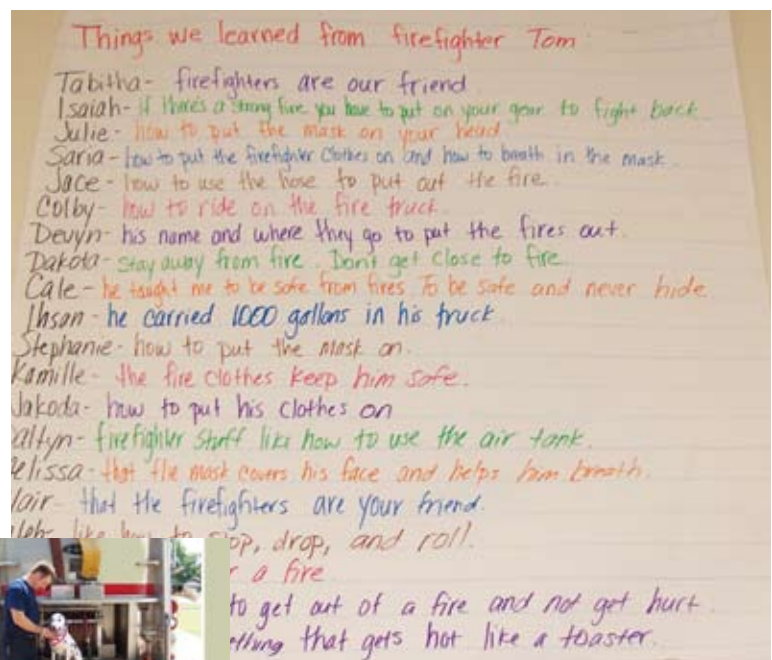 Things we learned from firefighter Tom
Tabitha- firefighters are our friend
Isaiah- if there's a strong fire you have to put on your gear to fight back
Julie- how to put the mask on your head
Saria- how to put the firefighter clothes on and how to breath in the mask
Jace- how to use the hose to put out the fire.
Colby- how to ride on the fire truck
Devyn- his name and where they go to put the fires out.
Dakota- stay away from fire. Don't get close to fire
Cale- he taught me to be safe from fires. To be safe and never hide.
Ihsan- he carried 1000 gallons in his truck
Stephanie- how to put the mask on.
Kamille- the fire clothes keep him safe.
Jakoda- how to put his clothes on
altyn- firefighter stuff like how to use the air tank.
elissa- that the mask covers his face and helps him breath.
lair- that the firefighters are your friend.
like how to stop, drop, and roll.
a fire
to get out of a fire and not get hurt
that gets hot like a toaster.